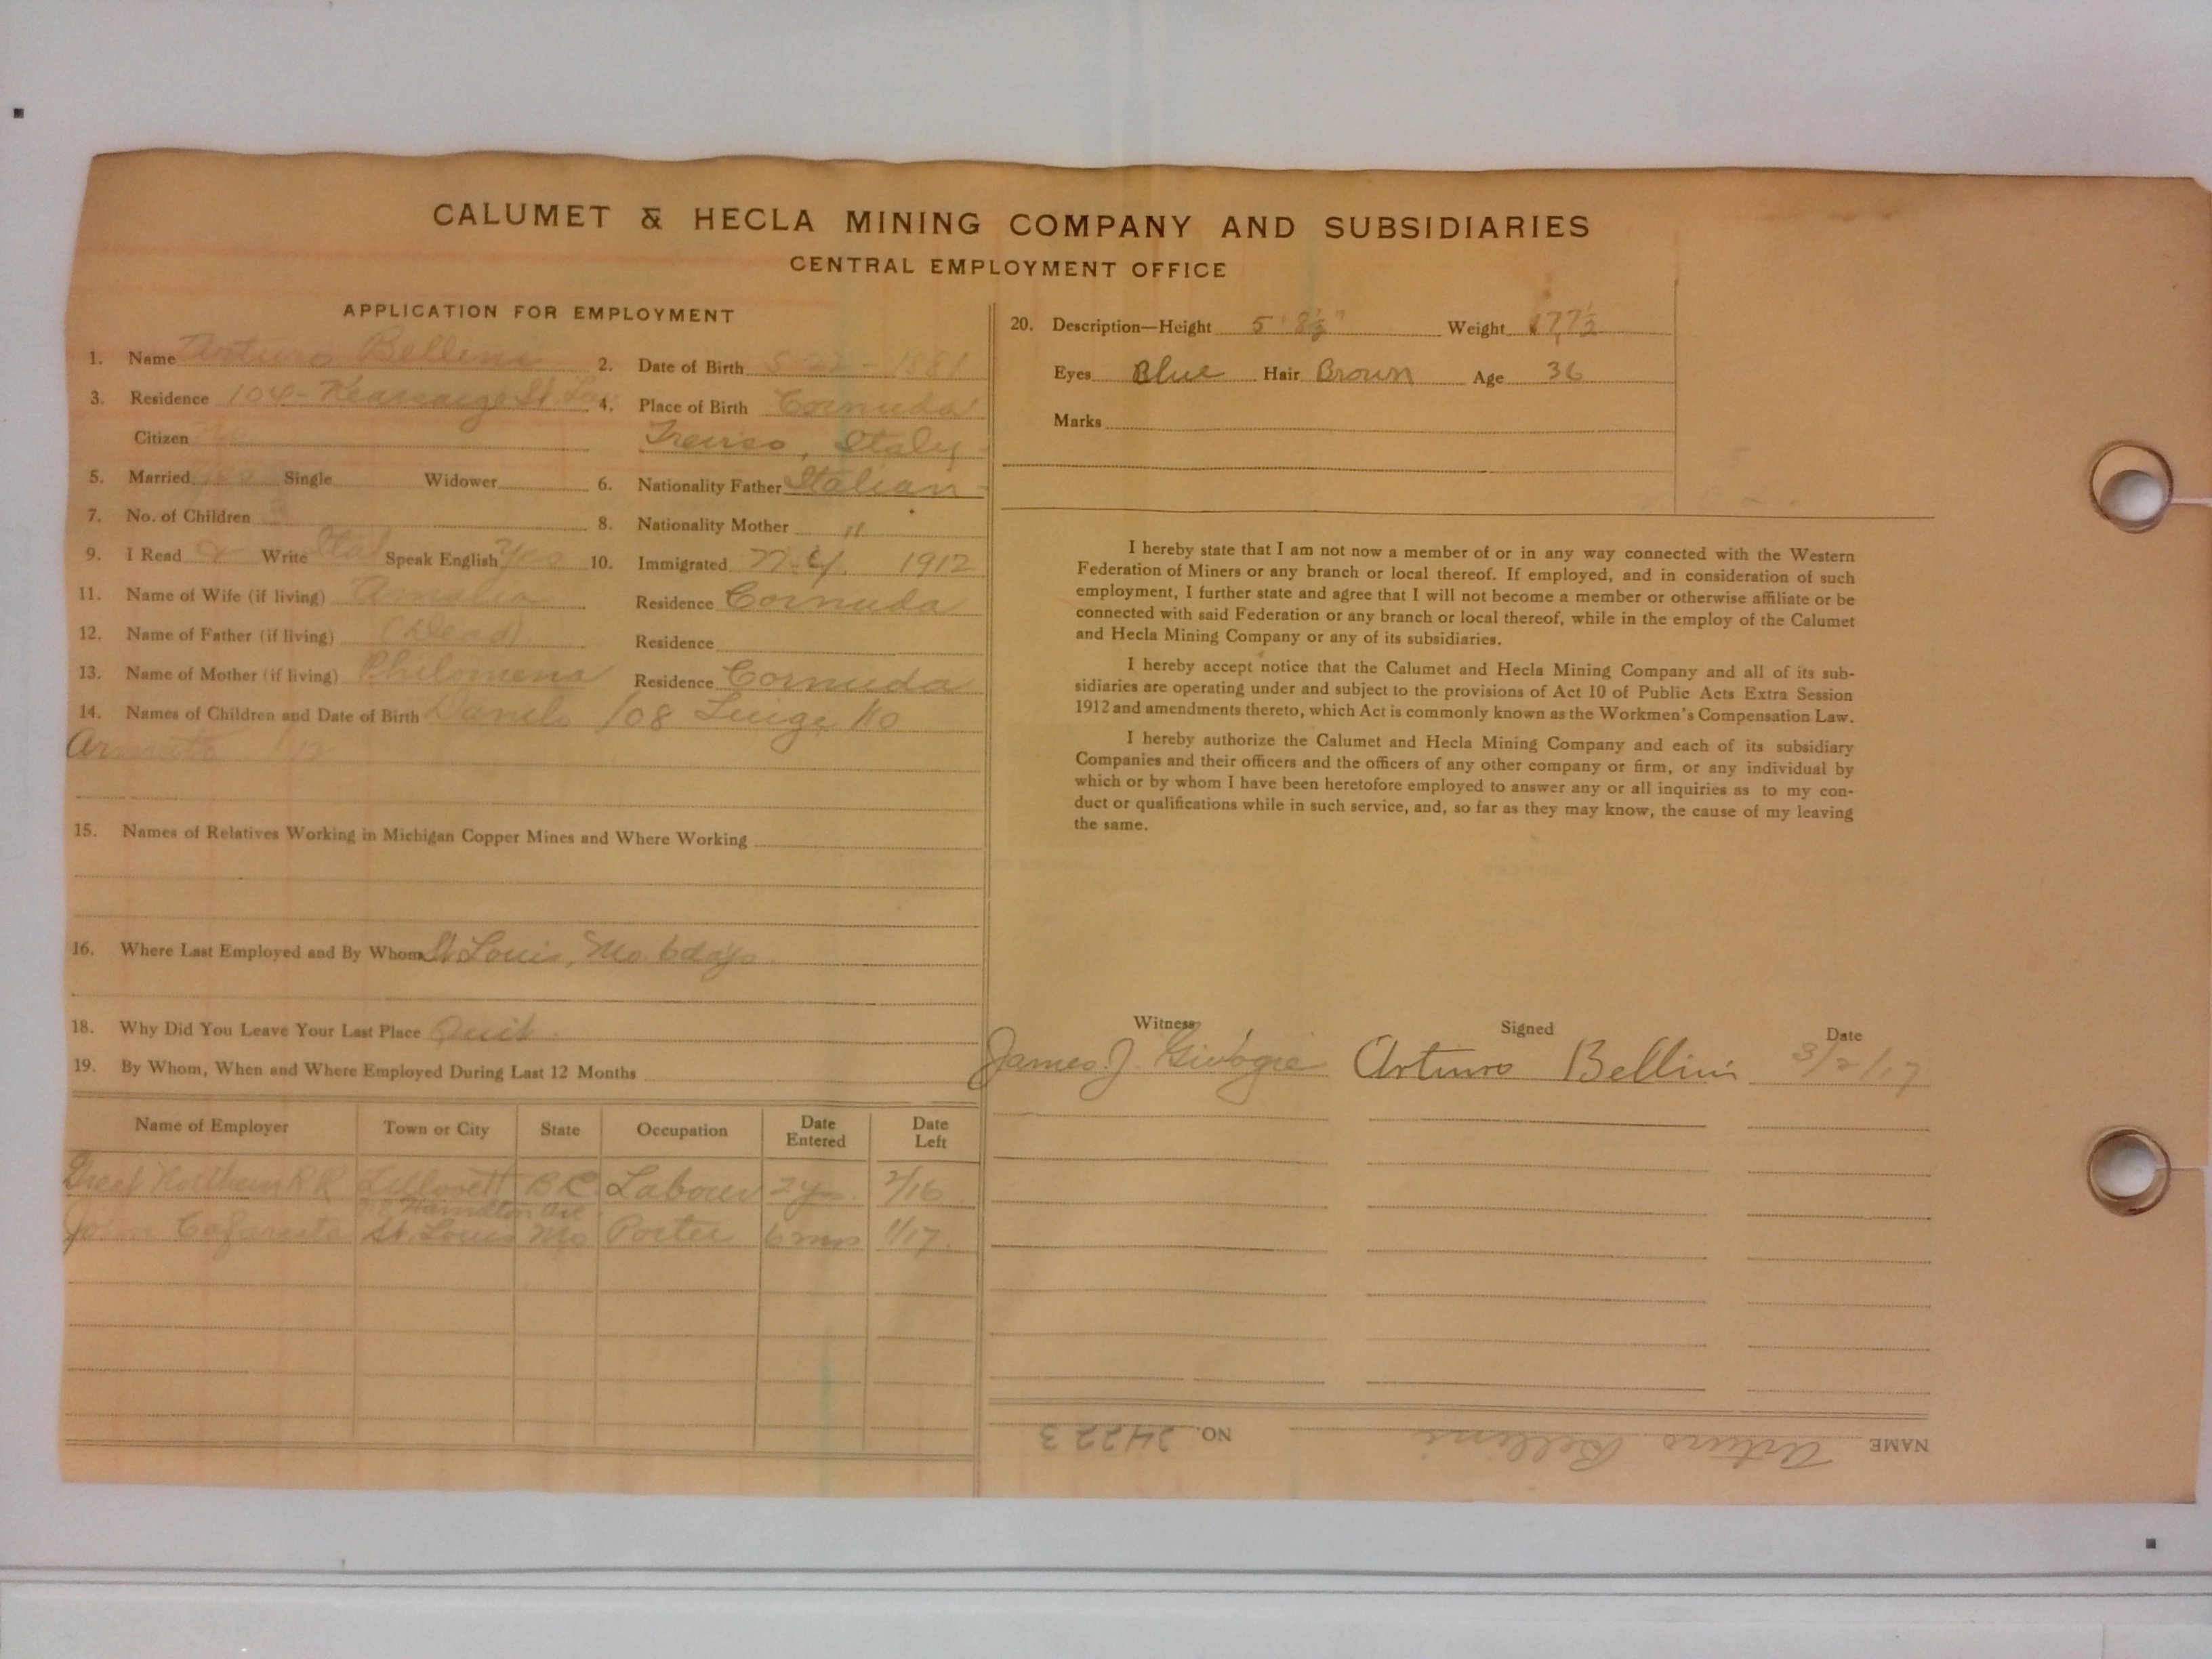 CALUMET & HECLA MINING COMPANY AND SUBSIDIARIES
CENTRAL EMPLOYMENT OFFICE
APPLICATION FOR EMPLOYMENT
1. Name Arturo Bellini 2. Date of Birth 5-22-1881
3. Residence 104- Kearsarge St 4. Place of Birth Cornuda
Citizen No Treviso, Italy
5. Married Yes Single Widower 6. Nationality Father Italian
7. No. of Children 3 8. Nationality Mother "
9. I Read & Write Ital Speak English Yes 10. Immigrated N.Y. 1912
11. Name of Wife (if living) Amalia Residence Cornuda
12. Name of Father (if living) (Dead) Residence
13. Name of Mother (if living) Philomena Residence Cornuda
14. Names of Children and Date of Birth Danilo /08 Luige /10
/12
15. Names of Relatives Working in Michigan Copper Mines and Where Working
16. Where Last Employed and By Whom St Louis, Mo. 6 days
18. Why Did You Leave Your Last Place Quit
19. By Whom, When and Where Employed During Last 12 Months
Name of Employer Town or City State Occupation Date Entered Date Left
Great Northern RR BC Labourer 2 yrs 2/16
Hamilton Ave
John St. Louis Mo Porter 6 mos 1/17
20. Description—Height 5' 8½" Weight 177½
Eyes Blue Hair Brown Age 36
Marks
I hereby state that I am not now a member of or in any way connected with the Western
Federation of Miners or any branch or local thereof. If employed, and in consideration of such
employment, I further state and agree that I will not become a member or otherwise affiliate or be
connected with said Federation or any branch or local thereof, while in the employ of the Calumet
and Hecla Mining Company or any of its subsidiaries.
I hereby accept notice that the Calumet and Hecla Mining Company and all of its sub-
sidiaries are operating under and subject to the provisions of Act 10 of Public Acts Extra Session
1912 and amendments thereto, which Act is commonly known as the Workmen's Compensation Law.
I hereby authorize the Calumet and Hecla Mining Company and each of its subsidiary
Companies and their officers and the officers of any other company or firm, or any individual by
which or by whom I have been heretofore employed to answer any or all inquiries as to my con-
duct or qualifications while in such service, and, so far as they may know, the cause of my leaving
the same.
Witness Signed Date
James J. Arturo Bellini 3/2/17
NAME Arturo Bellini NO. 24223